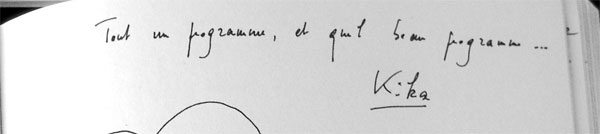 Tout un programme, et quel beau programme...
Kika